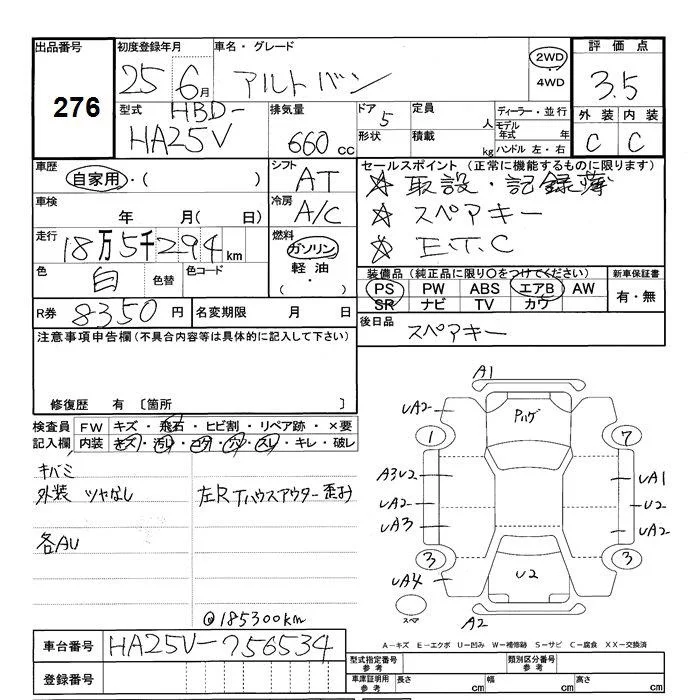 出品番号 初度登録年月 車名・グレード 評価点
276 25 6月 アルトバン 2WD 4WD 3.5
型式 HBD- HA25V 排気量 660cc ドア 5 定員 人 ディーラー・並行
形状 積載 kg モデル年式 年 ハンドル 左・右
外装 内装
C C
車歴 自家用・( ) シフト AT
車検 年 月( 日) 冷房 A/C
走行 18万5千294km 燃料 ガソリン 軽油 ( ・ )
色 白 色替 色コード
R券 8350円 名変期限 月 日
セールスポイント(正常に機能するものに限ります)
☆ 取説・記録簿
☆ スペアキー
☆ E.T.C
装備品(純品に限り○をつけてください) 新車保証書
PS PW ABS エアB AW 有・無
SR ナビ TV カワ
後日品 スペアキー
注意事項申告欄(不具合内容等は具体的に記入して下さい)
修復歴 有 〔箇所
検査員記入欄 FW キズ・飛石・ヒビ割・リペア跡・×要
内装 キズ・汚レ・コゲ・穴・スレ・キレ・破レ
キバミ
外装 ツヤなし 左RTハウスアウター歪み
各AU
@185300km
A1
UA2 Pハゲ
1 7
A3U2 UA1
UA2 U2
UA3 UA2
3 3
UA4 U2
スペア A2
A-キズ E-エクボ U-凹み W-補修跡 S-サビ C-腐食 XX-交換済
車台番号 HA25V-756534
登録番号
型式指定番号 参考 類別区分番号 参考
車庫証明用 参考 長さ cm 幅 cm 高さ cm